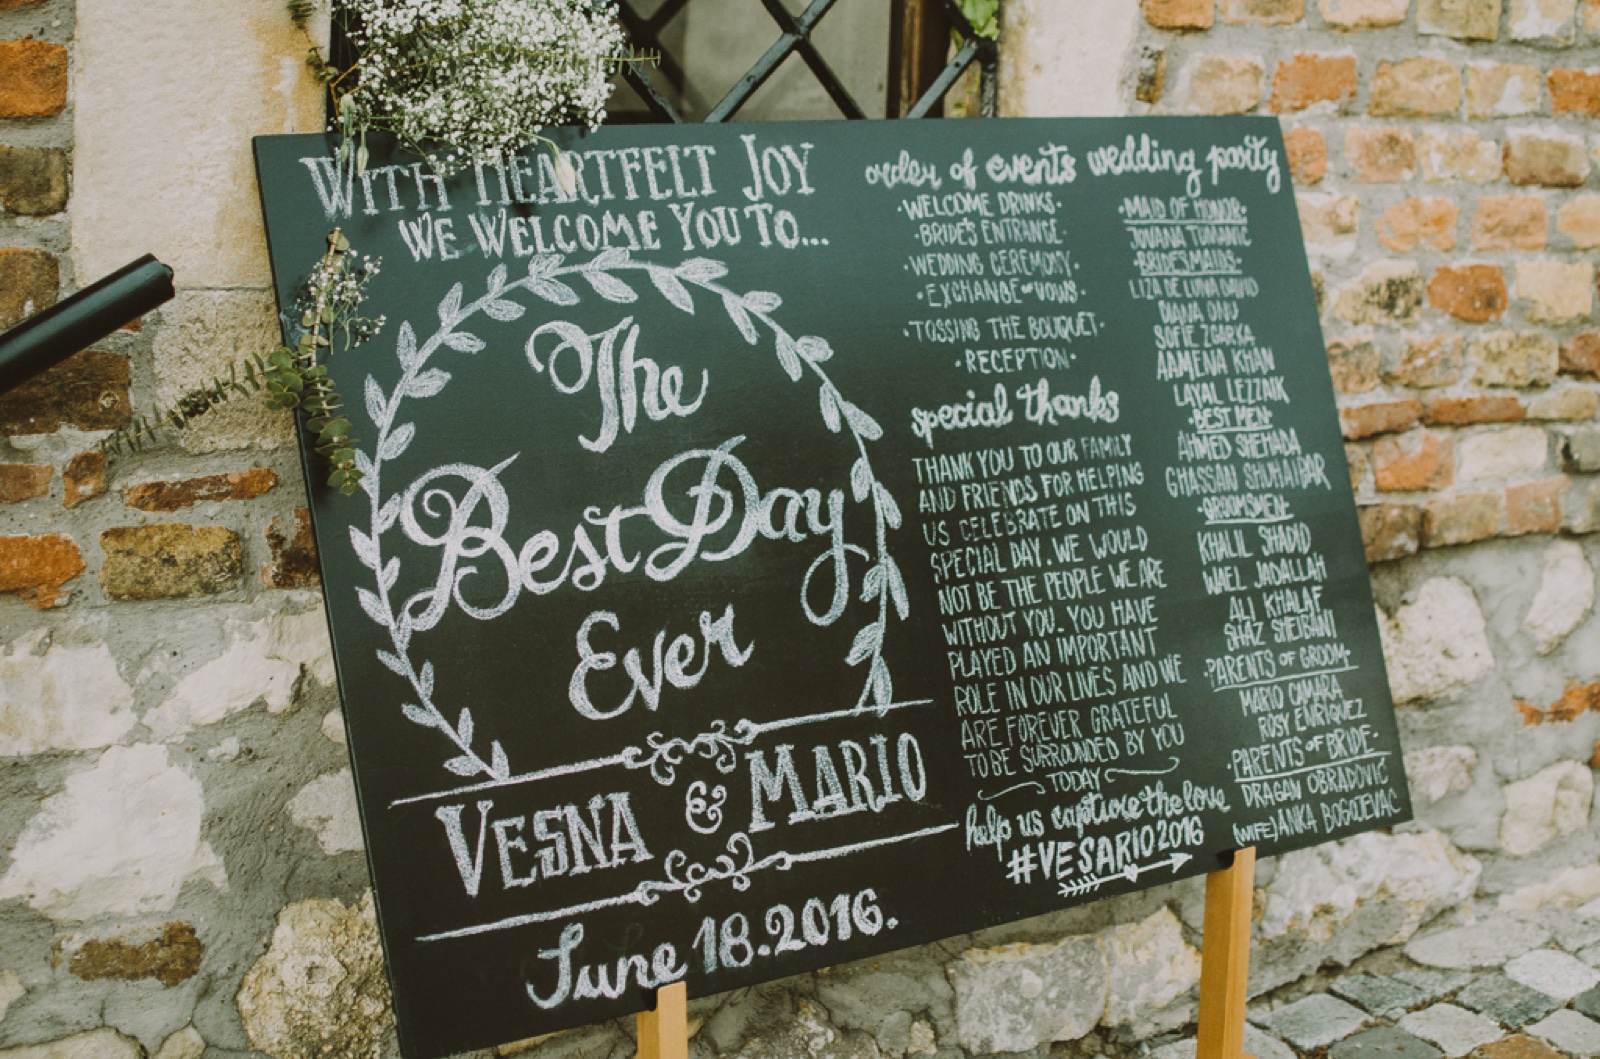 WITH HEARTFELT JOY
WE WELCOME YOU TO...
The
Best Day
Ever
VESNA & MARIO
June 18.2016.
order of events
·WELCOME DRINKS·
·BRIDE'S ENTRANCE·
·WEDDING CEREMONY·
·EXCHANGE OF VOWS·
·TOSSING THE BOUQUET·
·RECEPTION·
special thanks
THANK YOU TO OUR FAMILY
AND FRIENDS FOR HELPING
US CELEBRATE ON THIS
SPECIAL DAY. WE WOULD
NOT BE THE PEOPLE WE ARE
WITHOUT YOU. YOU HAVE
PLAYED AN IMPORTANT
ROLE IN OUR LIVES AND WE
ARE FOREVER GRATEFUL
TO BE SURROUNDED BY YOU
TODAY
help us capture the love
#VESARIO2016
wedding party
·MAID OF HONOR·
JOVANA TOMANIC
·BRIDESMAIDS·
LIZA DE LUNA DAVID
DIANA ONU
SOFIE ZGARKA
AAMENA KHAN
LAYAL LEZZAIK
·BEST MEN·
AHMED SHEHADA
GHASSAN SHUHAIBAR
·GROOMSMEN·
KHALIL SHADID
WAEL JADALLAH
ALI KHALAF
SHAZ SHEIBANI
·PARENTS OF GROOM·
MARIO CAMARA
ROSY ENRIQUEZ
·PARENTS OF BRIDE·
DRAGAN OBRADOVIĆ
(WIFE) ANKA BOGOJEVAC